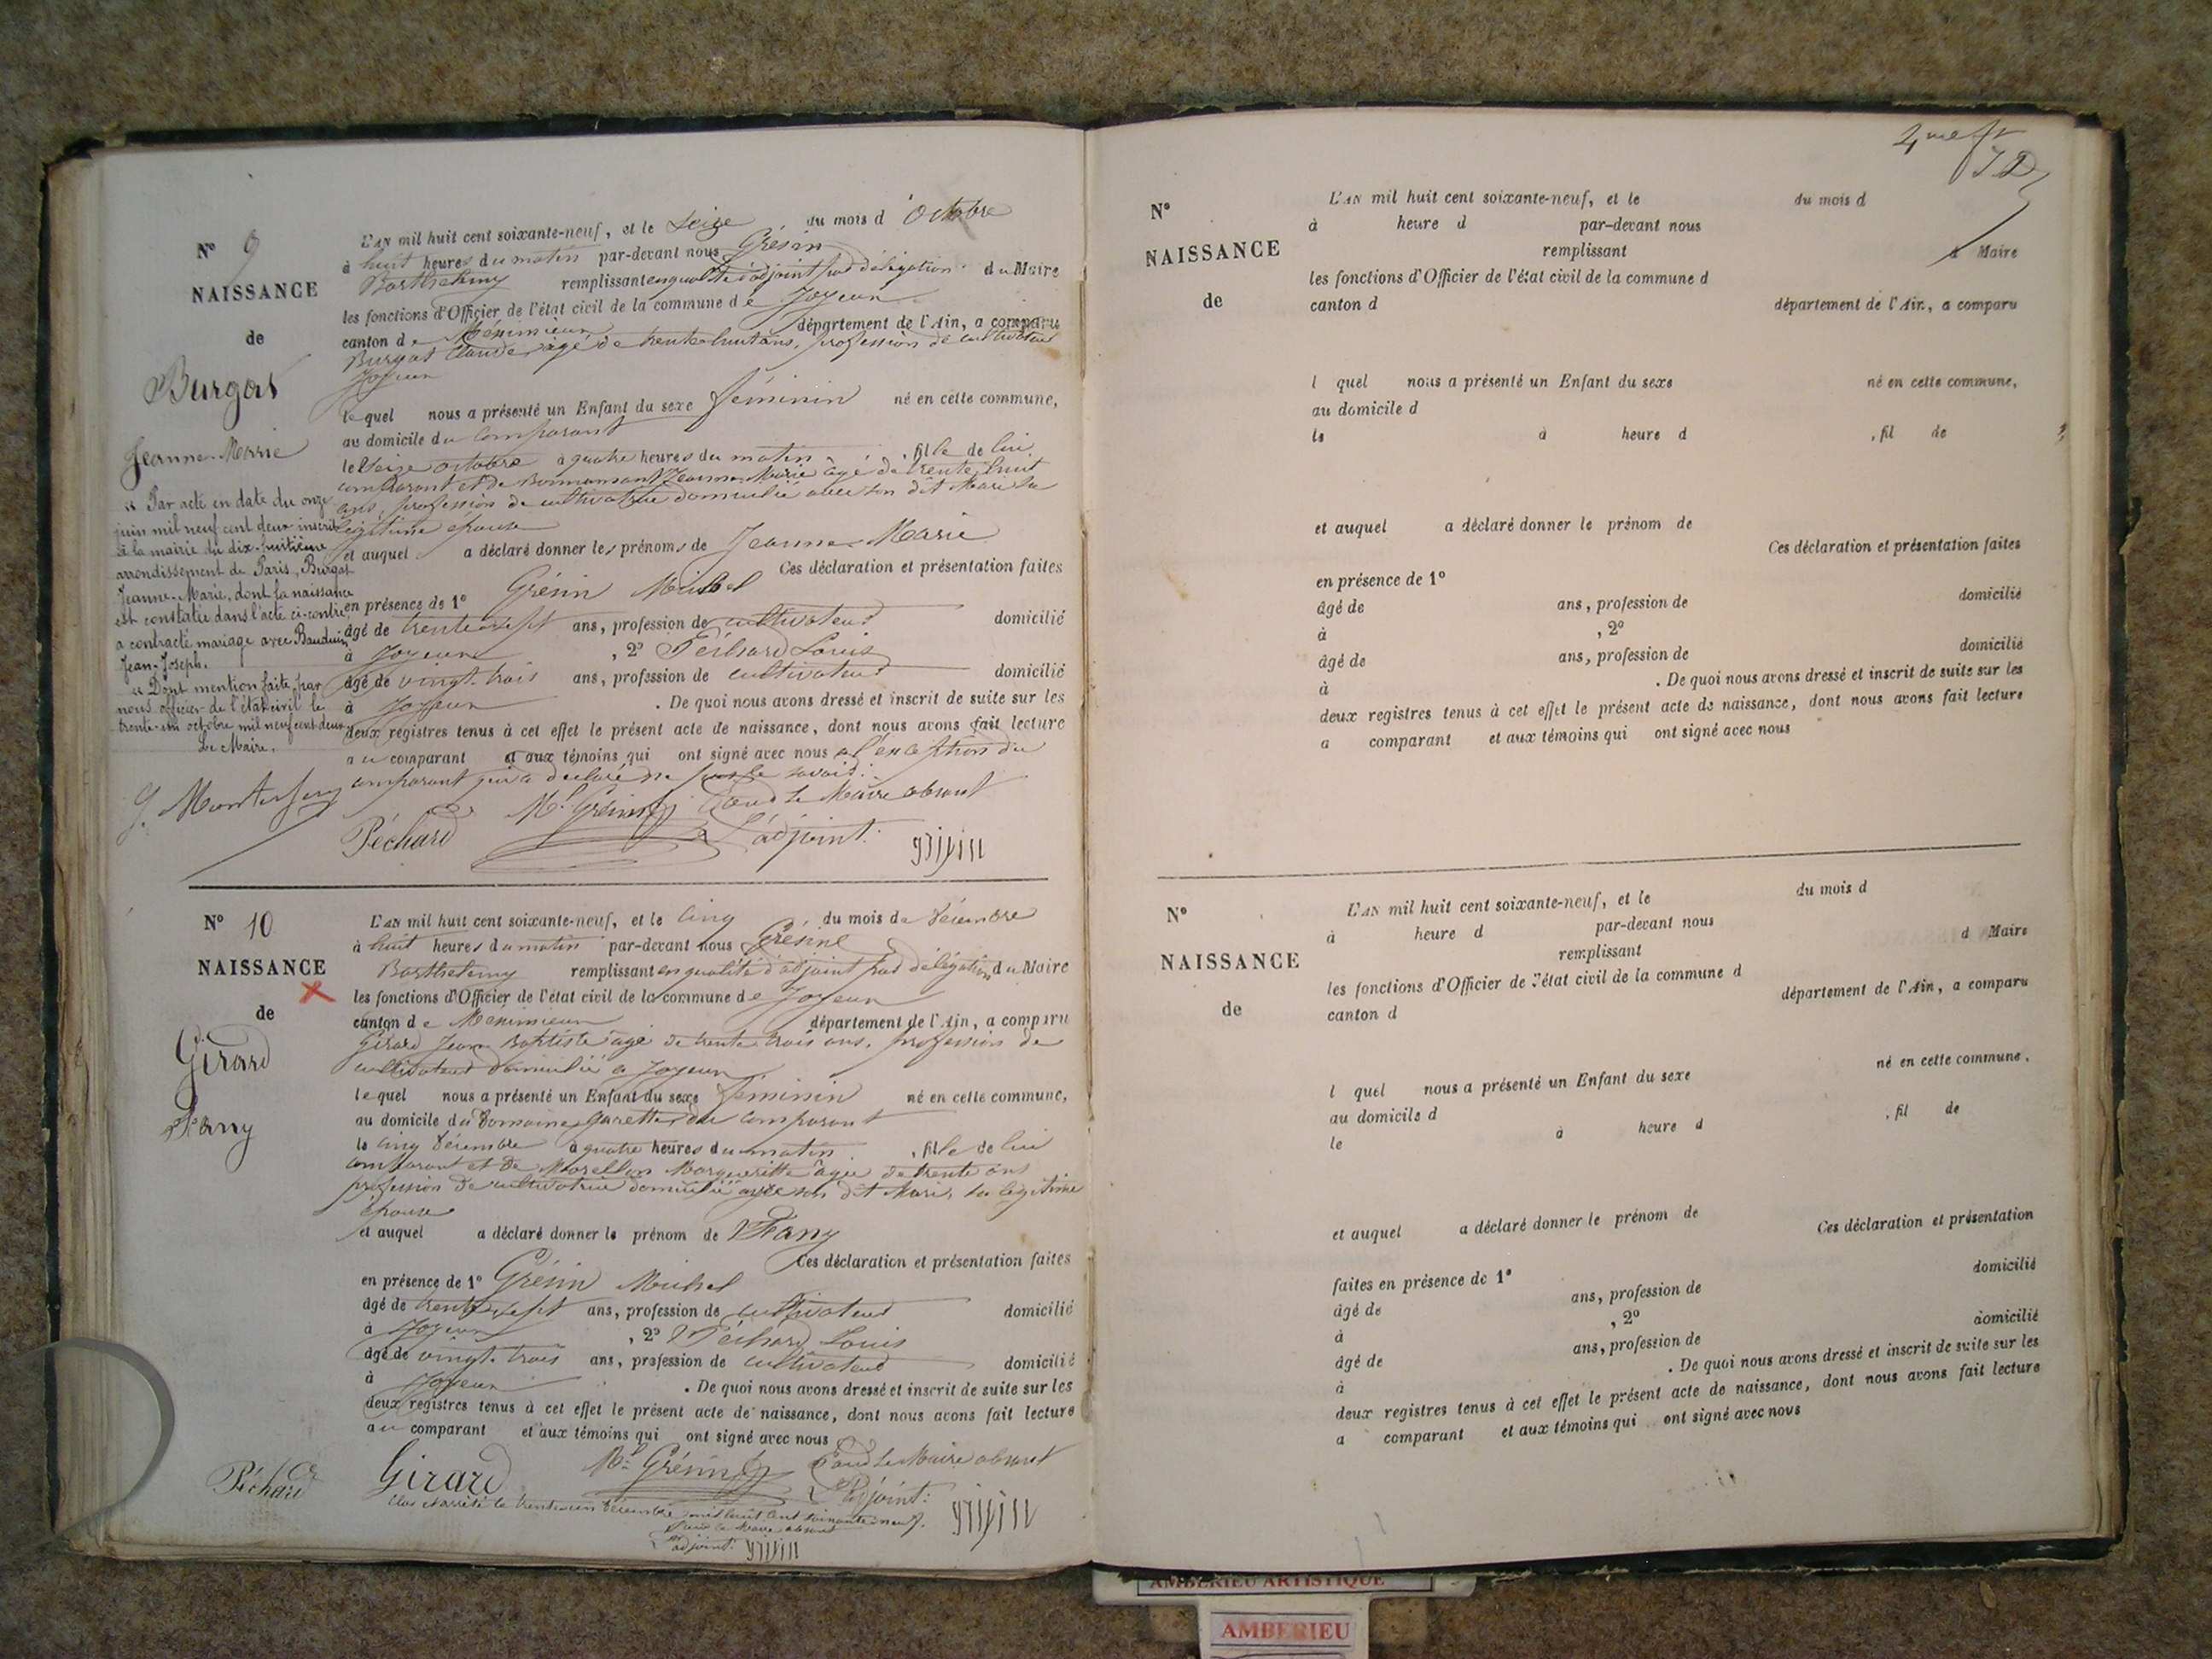 N° 9
NAISSANCE
de
Burgat
Jeanne-Marie
« Par acte en date du onze
juin mil neuf cent deux inscrit
à la mairie du dix-huitième
arrondissement de Paris, Burgat
Jeanne-Marie, dont la naissance
est constatée dans l'acte ci-contre,
a contracté mariage avec Bauduin
Jean-Joseph.
« Dont mention faite par
nous officier de l'état civil le
trente-un octobre mil neuf cent deux
Le Maire,
L'AN mil huit cent soixante-neuf, et le Seize du mois d'Octobre
à huit heures du matin par-devant nous Grésin
Barthelemy remplissant en qualité d'adjoint par délégation du Maire
les fonctions d'Officier de l'état civil de la commune de Joyeux
canton de Méximieux département de l'Ain, a comparu
Burgat Claude âgé de trente huit ans, profession de cultivateur
Joyeux
lequel nous a présenté un Enfant du sexe féminin né en cette commune,
au domicile du comparant
le Seize octobre à quatre heures du matin, fille de lui
comparant et de Jeanne Marie âgé de trente huit
ans, profession de cultivatrice domicilié avec son dit Mari sa
légitime épouse
et auquel a déclaré donner les prénoms de Jeanne Marie
Ces déclaration et présentation faites
en présence de 1° Grésin Michel
âgé de trente sept ans, profession de cultivateur domicilié
à Joyeux, 2° Péchard Louis
âgé de vingt-trois ans, profession de cultivateur domicilié
à Joyeux. De quoi nous avons dressé et inscrit de suite sur les
deux registres tenus à cet effet le présent acte de naissance, dont nous avons fait lecture
au comparant et aux témoins qui ont signé avec nous a l'exception du
comparant qui a déclaré ne pas le savoir.
Péchard Ml Grésin Pour le Maire absent
L'adjoint:
N° 10
NAISSANCE
de
Girard
Fany
L'AN mil huit cent soixante-neuf, et le cinq du mois de Décembre
à huit heures du matin par-devant nous Grésine
Barthelemy remplissant en qualité d'adjoint par délégation du Maire
les fonctions d'Officier de l'état civil de la commune de Joyeux
canton de Meximieux département de l'Ain, a comparu
Girard Jean Baptiste âgé de trente trois ans, profession de
cultivateur domicilié a Joyeux
lequel nous a présenté un Enfant du sexe féminin né en cette commune,
au domicile du Domaine du comparant
le cinq Décembre à quatre heures du matin, fille de lui
comparant et de Morellon Margueritte âgée de trente ans
profession de cultivatrice domicilié avec son dit Mari, sa légitime
épouse
et auquel a déclaré donner le prénom de Fany
Ces déclaration et présentation faites
en présence de 1° Grésin Michel
âgé de trente sept ans, profession de cultivateur domicilié
à Joyeux, 2° Péchard Louis
âgé de vingt-trois ans, profession de cultivateur domicilié
à Joyeux. De quoi nous avons dressé et inscrit de suite sur les
deux registres tenus à cet effet le présent acte de naissance, dont nous avons fait lecture
au comparant et aux témoins qui ont signé avec nous
Péchard Girard Ml Grésin Pour le Maire absent
L'adjoint:
Clos et arrêté le trente un Décembre mil huit cent soixante neuf.
Pour le Maire absent
L'adjoint:
N°
NAISSANCE
de
L'AN mil huit cent soixante-neuf, et le du mois d
à heure d par-devant nous
remplissant d Maire
les fonctions d'Officier de l'état civil de la commune d
canton d département de l'Ain, a comparu
l quel nous a présenté un Enfant du sexe né en cette commune,
au domicile d
le à heure d , fil de
et auquel a déclaré donner le prénom de
Ces déclaration et présentation faites
en présence de 1°
âgé de ans, profession de domicilié
à , 2°
âgé de ans, profession de domicilié
à . De quoi nous avons dressé et inscrit de suite sur les
deux registres tenus à cet effet le présent acte de naissance, dont nous avons fait lecture
a comparant et aux témoins qui ont signé avec nous
N°
NAISSANCE
de
L'AN mil huit cent soixante-neuf, et le du mois d
à heure d par-devant nous
remplissant d Maire
les fonctions d'Officier de l'état civil de la commune d
canton d département de l'Ain, a comparu
l quel nous a présenté un Enfant du sexe né en cette commune,
au domicile d
le à heure d , fil de
et auquel a déclaré donner le prénom de
Ces déclaration et présentation
faites en présence de 1° domicilié
âgé de ans, profession de
à , 2° domicilié
âgé de ans, profession de
à . De quoi nous avons dressé et inscrit de suite sur les
deux registres tenus à cet effet le présent acte de naissance, dont nous avons fait lecture
a comparant et aux témoins qui ont signé avec nous
AMBERIEU ARTISTIQUE
AMBERIEU